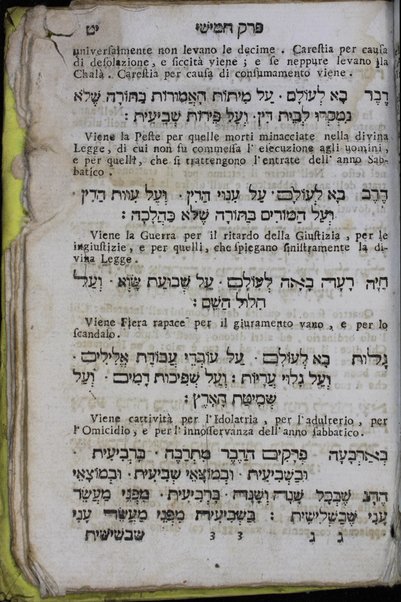 פרק חמישי יט
universalmente non levano le decime . Carestia per causa
di desolazione, e siccità viene ; e se neppure levano lla
Chalà . Carestia per causa di consumamento viene .
דֶבֶר בָּא לְעוֹלָם . עַל מִיתוֹת הָאֲמוּרוֹת בַּתּוֹרָה שֶׁלֹּא
נִמְסְרוּ לְבֵית דִּין . וְעַל פֵּירוֹת שְׁבִיעִית :
Viene la Peste per quelle morti minacciate nella divina
Legge, di cui non fù commessa l' esecuzione agli uomini ,
e per quelli, che si trattengono l'entrate dell' anno Sab-
batico .
חֶרֶב בָּא לְעוֹלָם . עַל עִנּוּי הַדִּין . וְעַל עִוּוּת הַדִּין .
וְעַל הַמּוֹרִים בַּתּוֹרָה שֶׁלֹּא כַּהֲלָכָה :
Viene la Guerra per il ritardo della Giustizia , per le
ingiustizie, e per quelli, che spiegano sinistramente la di-
vina Legge .
חַיָּה רָעָה בָּאָה לָעוֹלָם . עַל שְׁבוּעַת שָׁוְא . וְעַל
חִלּוּל הַשֵּׁם :
Viene Fiera rapace per il giuramento vano , e per lo
scandalo .
גָּלוּת בָּא לְעוֹלָם . עַל עוֹבְרֵי עֲבוֹדַת אֱלִילִים .
וְעַל גִּלּוּי עֲרָיוֹת : וְעַל שְׁפִיכוּת דָּמִים . וְעַל
שְׁמִיטַּת הָאָרֶץ :
Viene cattività per l'Idolatria , per l'adulterio , per
l'Omicidio , e per l'innosservanza dell' anno sabbatico .
בְּאַרְבָּעָה פְרָקִים הַדֶּבֶר מִתְרַבֶּה . בָּרְבִיעִית .
וּבַשְּׁבִיעִית . וּבְמוֹצָאֵי שְׁבִיעִית . וּבְמוֹצָאֵי
הַחַג שֶׁבְּכָל שָׁנָה וְשָׁנָה . בָּרְבִיעִית . מִפְּנֵי מַעֲשַׂר
עָנִי שֶׁבַּשְּׁלִישִׁית : בַּשְּׁבִיעִית מִפְּנֵי מַעֲשַׂר עָנִי
ג ג 3 3 שבששית